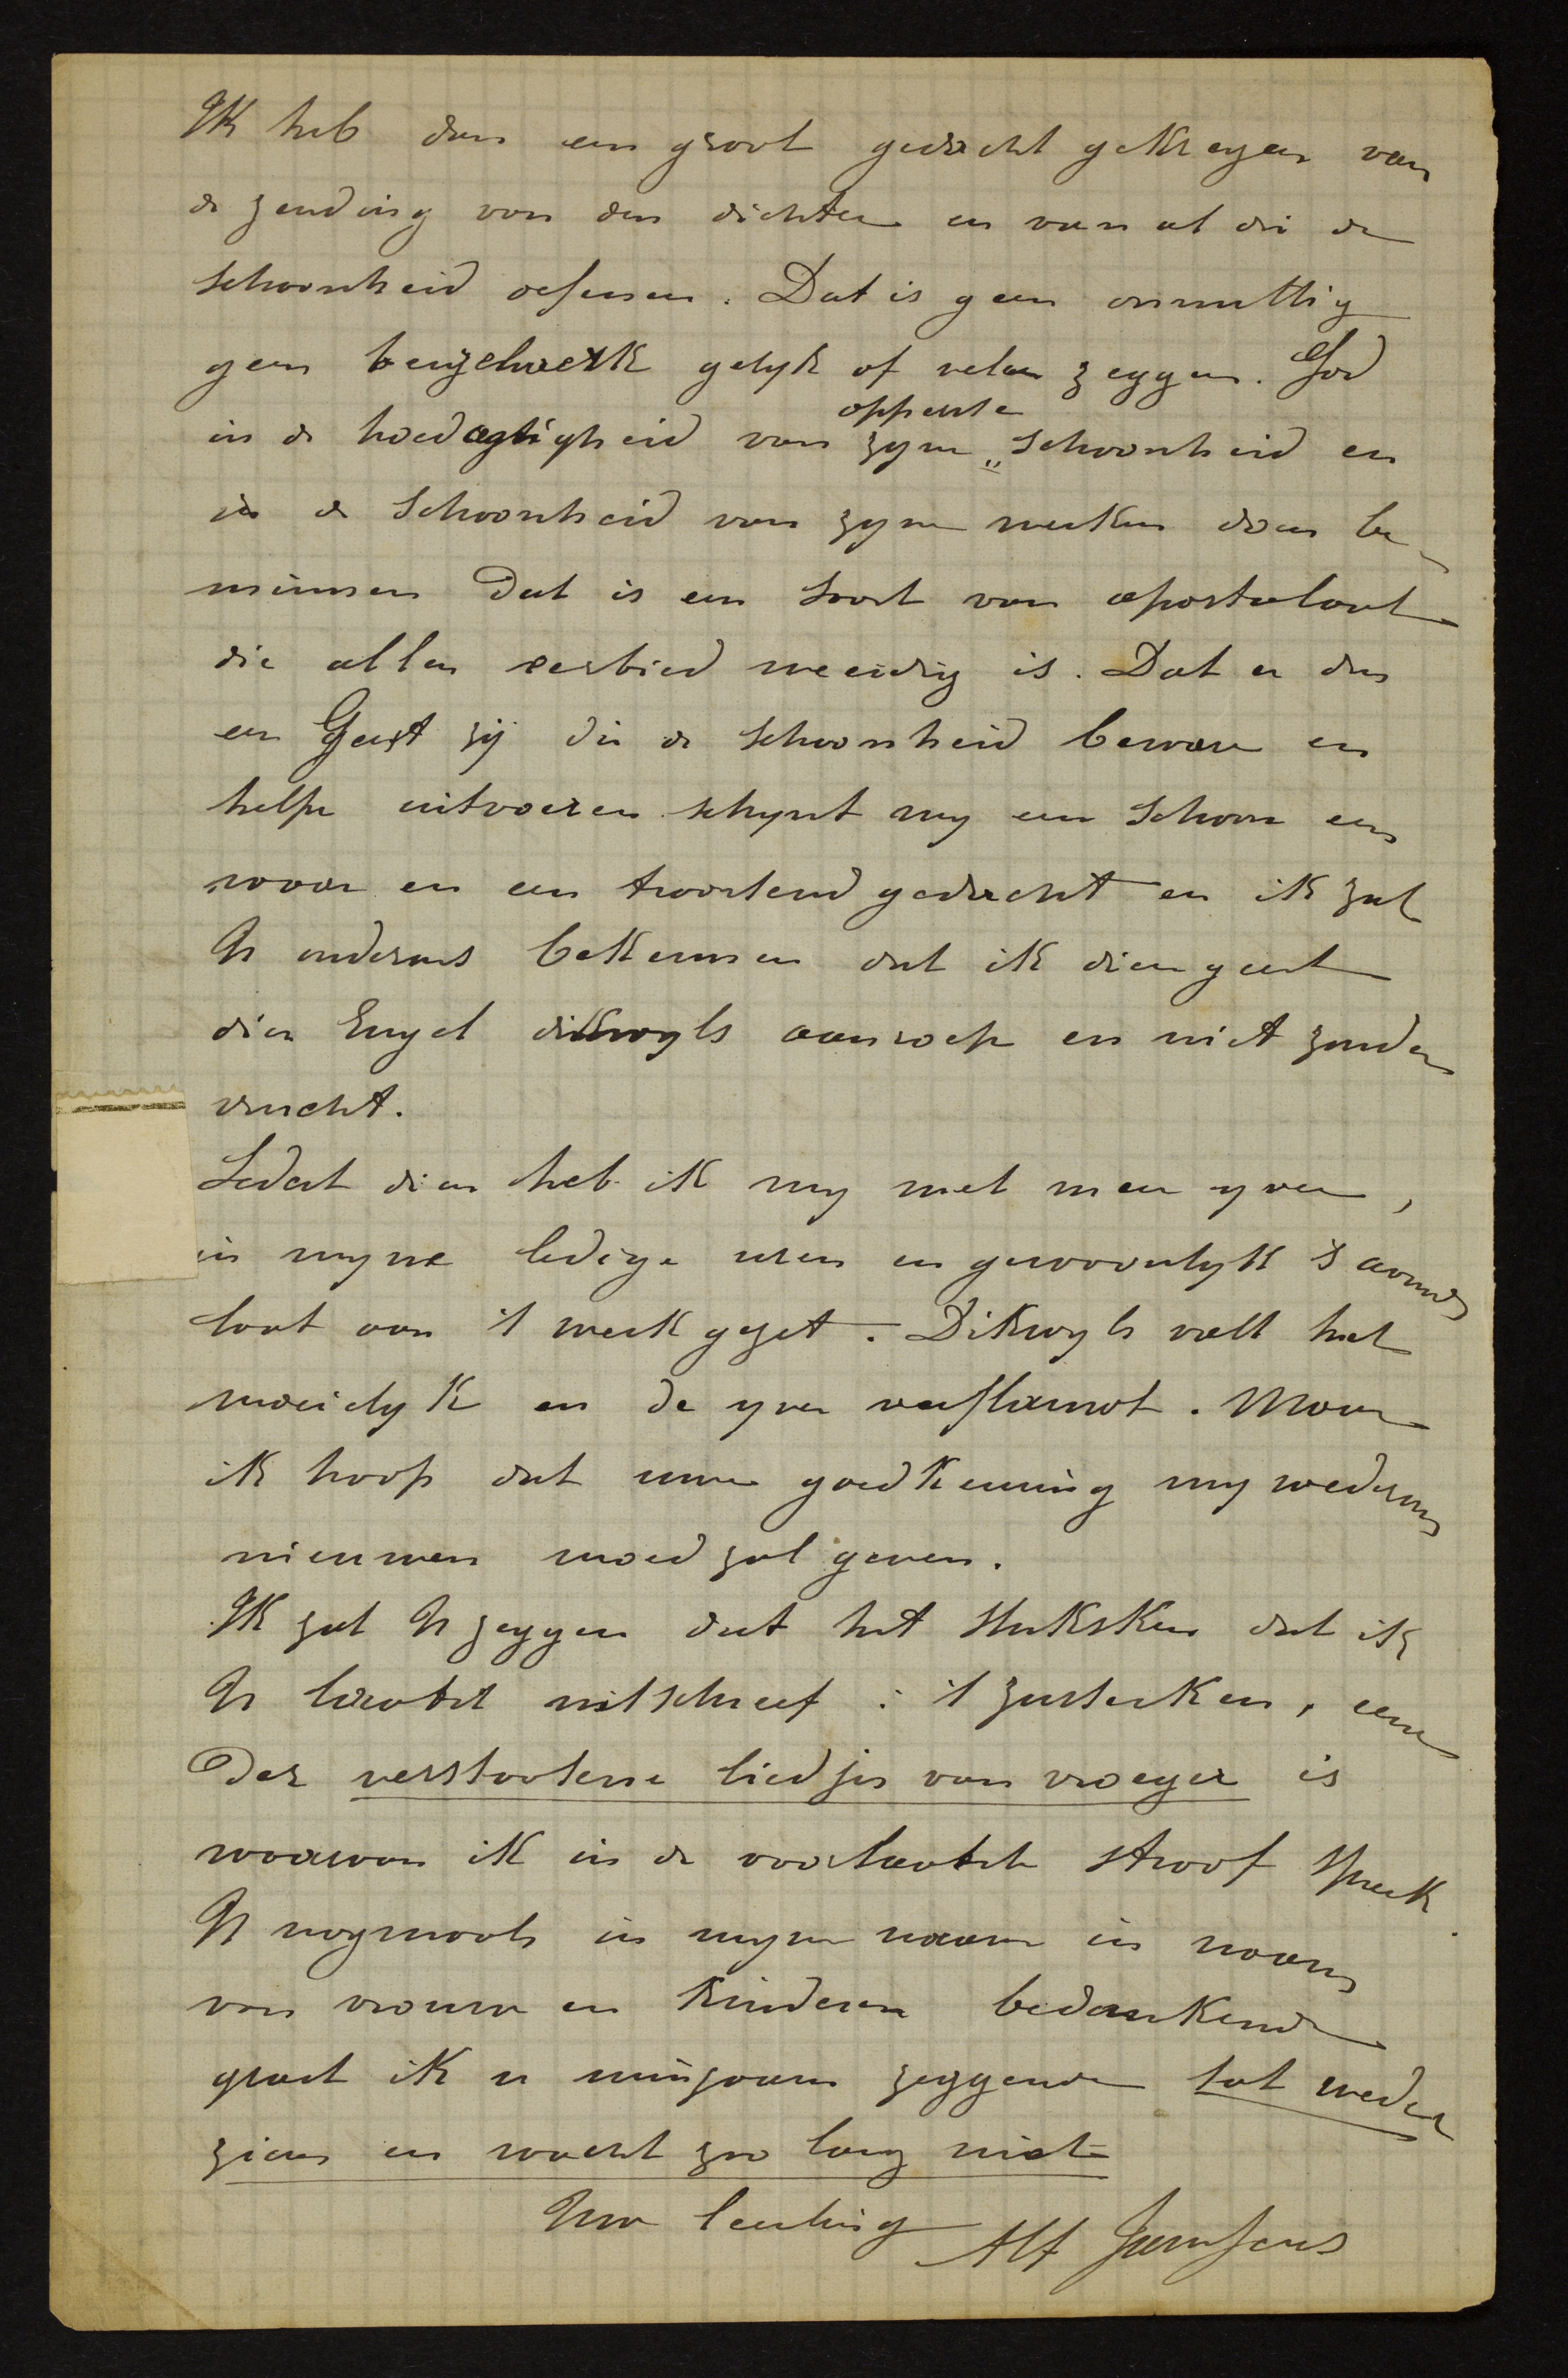 Ik heb dan een groot gedacht gekregen van
de zending van den dichter en van al die de
schoonheid oefenen. Dat is geen onnuttig
geen beuzelwerk gelyk of velen zeggen. God
in de hoedagtigheid van zyne opperste schoonheid en
in de schoonheid van zyne werken doen be-
minnen dat is een soort van apostelaat
die allen eerbied weerdig is. Dat er dus
een Geest zij die de schoonheid beware en
helpe uitvoeren schynt my een schoone een
ware en een troostend gedacht en ik zal
U anderens bekennen dat ik dien geest
dien Engel dikwyls aanroep en niet zonder
vrucht.
Sedert dien heb ik my met meer yver,
in myne ledige uren en gewoonlyk 's avonds
laat aan 't werk gezet. Dikwyls valt het
moeielyk en de yver verflauwt. Maar
ik hoop dat uwe goedkeuring my wederom
nieuwen moed zal geven.
Ik zal U zeggen dat het stuksken dat ik
U laatst uitschreef : 't zusterken, eene
der verstootene liedjes van vroeger is
waarvan ik in de voorlaatste stroof spreek.
U nogmaals in myne naam in naam
van vrouw en kinderen bedankende
groet ik u minzaam zeggende tot weder
ziens en wacht zoo lang niet
Uw leerling Alf Janssens